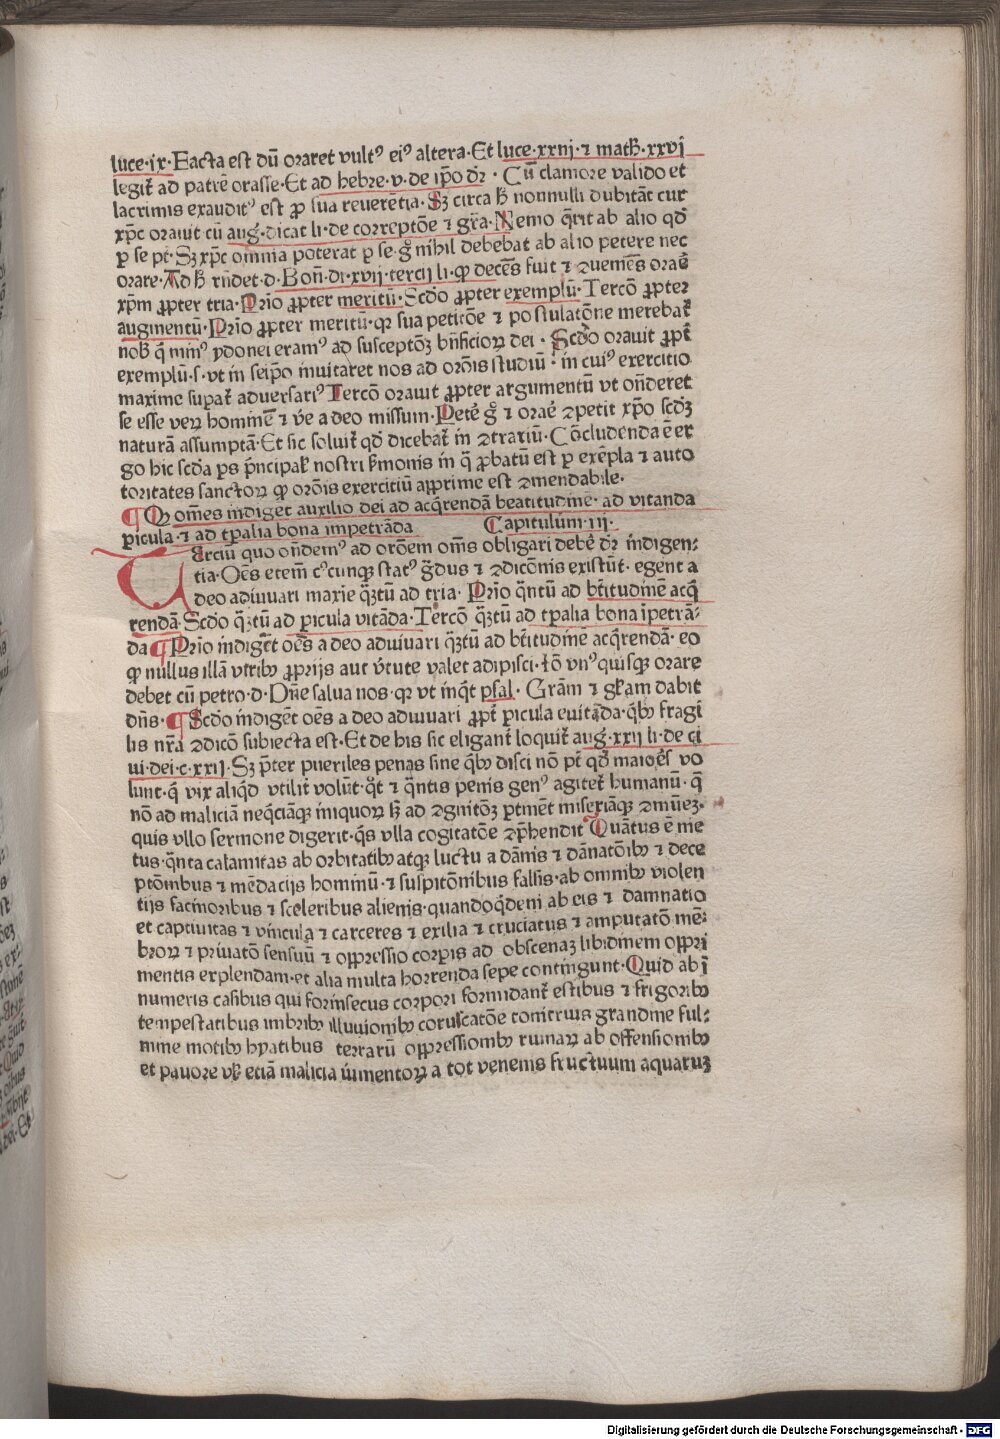 luce·ix·Facta est dū oraret vultꝰ eiꝰ altera·Et luce·xxnj·⁊ math̄·xxvj
legit̄ ad patrē orasse·Et ad hebre·v·de ip̄o dr̄·Cū clamore valido et
lacrimis exauditꝰ est ꝓ sua reuerētia·Sꝫ circa h̄ nonnulli dubitāt cur
xp̄c orauit cū aug·dicat li·de correptōe ⁊ gr̄a·Nemo q̄rit ab alio qd̄
ꝑ se pt̄·Sꝫ xp̄c omnia poterat ꝑ se·gͦ nihil debebat ab alio petere nec
orare·Ad h̄ rn̄det·d·Bon̄·di·xvij·tercij li·ꝙ decēs fuit ⁊ ꝯueniēs oraē
xp̄m ꝓpter tria·Prīo ꝓpter meritū·Scd̄o ꝓpter exemplū·Tercō ꝓpter
augmentū·Prīo ꝓpter meritū·qꝛ sua peticōe ⁊ postulatōne merebat̄
nob̄ q̄ minꝰ ydonei eramꝰ ad susceptōꝫ bn̄ficioꝝ dei·Scd̄o orauit ꝓpt̄
exemplū·s·vt in seip̄o inuitaret nos ad orōis studiū·in cuiꝰ exercitio
maxime suꝑat̄ aduersariꝰ Tercō orauit ꝓpter argumentū vt on̄deret
se esse verū hominē ⁊ v̄e a deo missum·Petē gͦ ⁊ oraē ꝯpetit xp̄o scd̄ꝫ
naturā assumptā·Et sic soluit̄ qd̄ dicebat̄ in ꝯtrariū·Cōcludenda ē er
go hic scd̄a ꝑs p̄ncipal̄ nostri s̄monis in q̄ ꝓbatū est ꝑ exēpla ⁊ auto
toritates sanctoꝝ ꝙ orōis exercitiū apprime est ꝯmendabile·
¶ Qꝙ om̄es indigēt auxilio dei ad acq̄rendā beatitudinē·ad vitanda
ꝑicula·⁊ ad tꝑalia bona impetrāda Capitulum·iij·
Terciū quo on̄demꝰ ad orōem om̄s obligari debē dr̄ indigen⸗
tia·Oēs etem̄ cꝰcunqꝫ statꝰ gͣdus ⁊ ꝯdicōnis existūt·egent a
deo adiuuari maxīe qͣꝫtū ad tria·Prīo qͣntū ad bt̄itudinē acq̄
rendā·Scd̄o qͣꝫtū ad ꝑicula vitāda·Tercō qͣꝫtū ad tꝑalia bona īpetrā⸗
da ¶ Prīo indigēt oēs a deo adiuuari qͣꝫtū ad bt̄itudinē acq̄rendā·eo
ꝙ nullus illā virib⁊ ꝓprijs aut v̄tute valet adipisci·Iō vnꝰquisqꝫ orare
debet cū petro·d·Dn̄e salua nos·qꝛ vt inq̄t psal·Grām ⁊ gl̄iam dabit
dn̄s·¶ Scd̄o indigēt oēs a deo adiuuari ꝓpt̄ ꝑicula euitāda·qͥb⁊ fragi
lis nr̄a ꝯdicō subiecta est·Et de his sic eligant̄ loquit̄ aug·xxij li·de ci
ui·dei·c·xxij·Sꝫ p̄ter pueriles penas sine qͥb⁊ disci nō pt̄ qd̄ maiores vo
lunt·q̄ vix aliqͥd vtilit̄ volūt·qͦt ⁊ qͣntis penis genꝰ agitet̄ humanū·q̄
nō ad maliciā neqͥciāqꝫ iniquoꝝ sꝫ ad ꝯgnitōꝫ ꝑtinēt miseriāqꝫ ꝯmūeꝫ·
quis vllo sermone digerit·qͥs vlla cogitatōe ꝯp̄hendit Quātus ē me
tus·qͣnta calamitas ab orbitatib⁊ atqꝫ luctu a dānis ⁊ dānatōib⁊ ⁊ dece
ptōnibus ⁊ mēdacijs hominū·⁊ suspitōnibus falsis·ab omnib⁊ violen
tijs facinoribus ⁊ sceleribus alienis·quandoqͥdem ab eis ⁊ damnatio
et captiuitas ⁊ vincula ⁊ carceres ⁊ exilia ⁊ cruciatus ⁊ amputatō mē⸗
broꝝ ⁊ priuatō sensuū ⁊ oppressio corꝑis ad obscenaꝫ libidinem oppri
mentis explendam·et alia multa horrenda sepe contingunt·Quid ab ī
numeris casibus qui forinsecus corpori formidant̄ estibus ⁊ frigorib⁊
tempestatibus imbrib⁊ illuuionib⁊ coruscatōe tonitruis grandine ful⸗
mine motib⁊ hyatibus terrarū oppressionib⁊ ruinaꝝ ab offensionib⁊
et pauore vl̄ etiā malicia iumentoꝝ a tot venenis fructuum aquaruꝫ
Digitalisierung gefördert durch die Deutsche Forschungsgemeinschaft - DFG